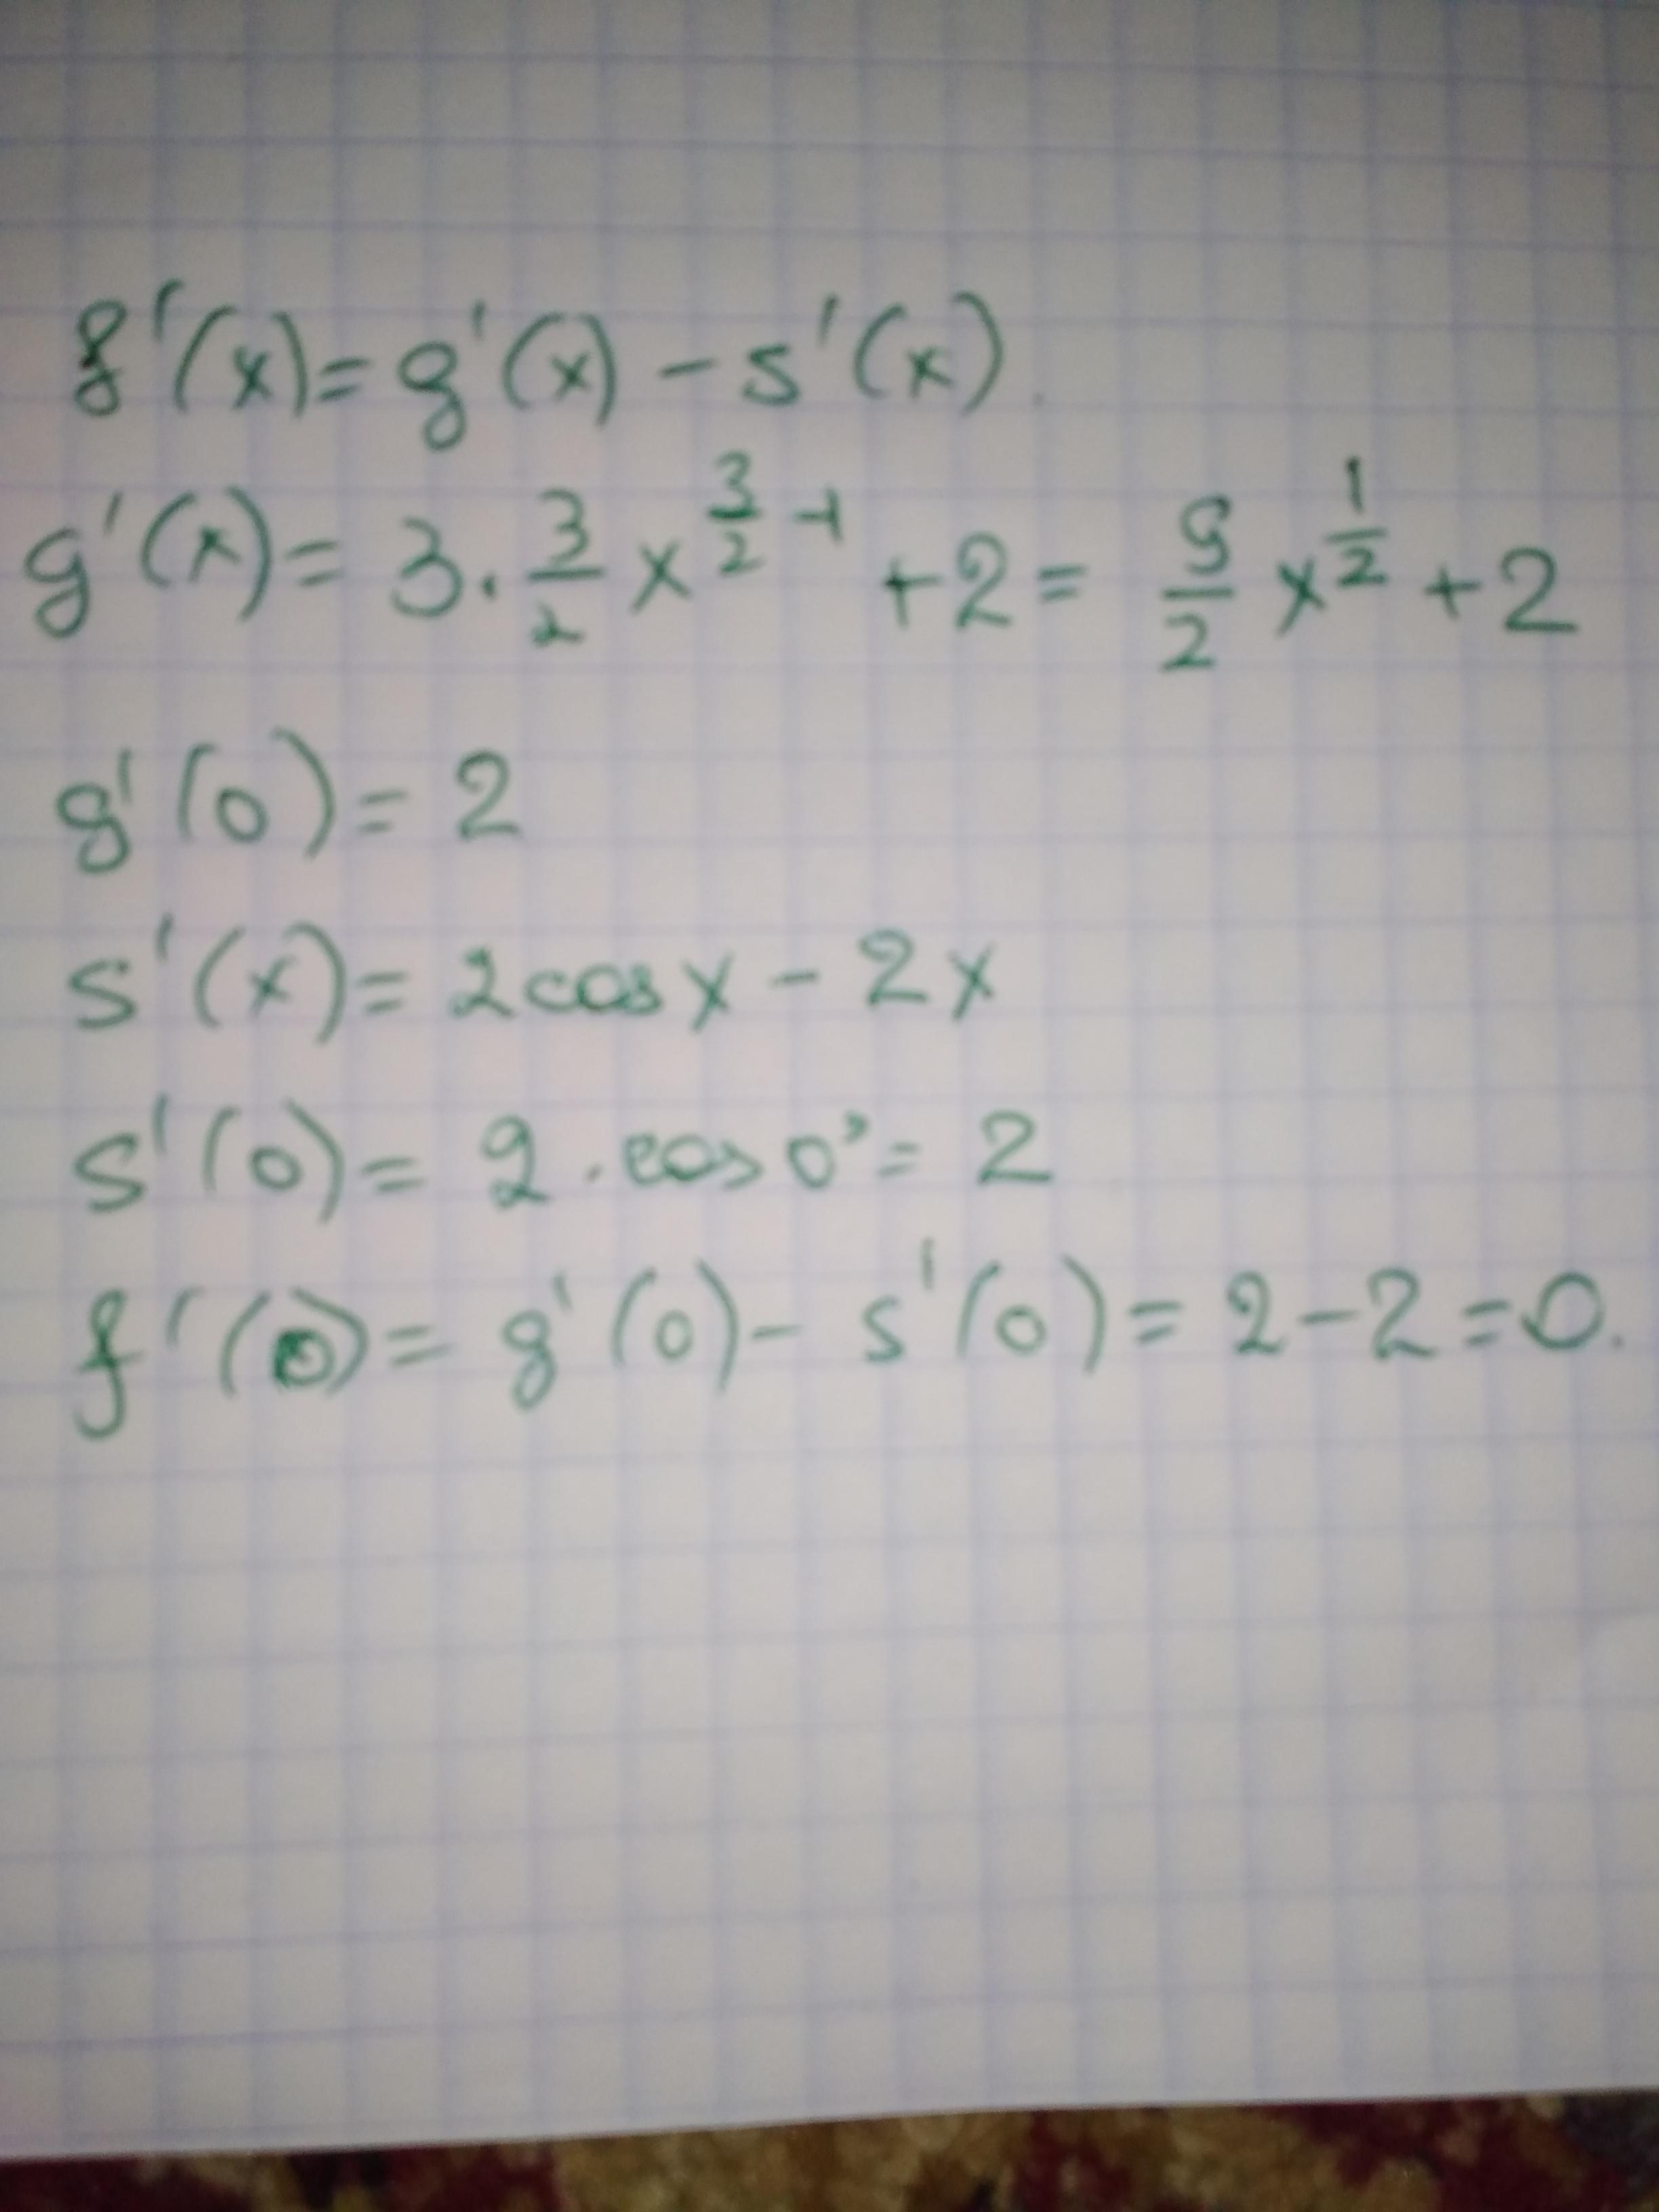 f'(x)=g'(x)-s'(x).
g'(x)=3·3/2 x^(3/2-1)+2=9/2 x^(1/2)+2
g'(0)=2
s'(x)=2cosx-2x
s'(0)=2·cos0°=2
f'(0)=g'(0)-s'(0)=2-2=0.